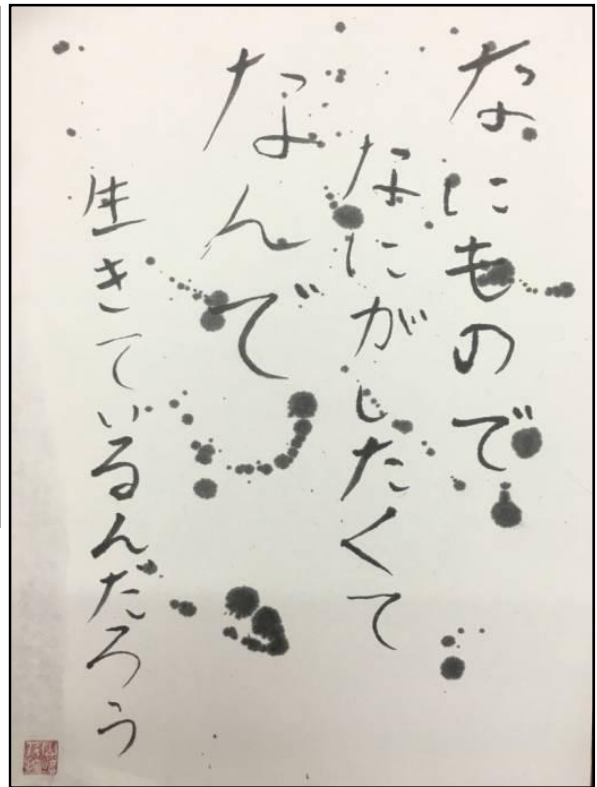 なにもので
なにがしたくて
なんで
生きているんだろう